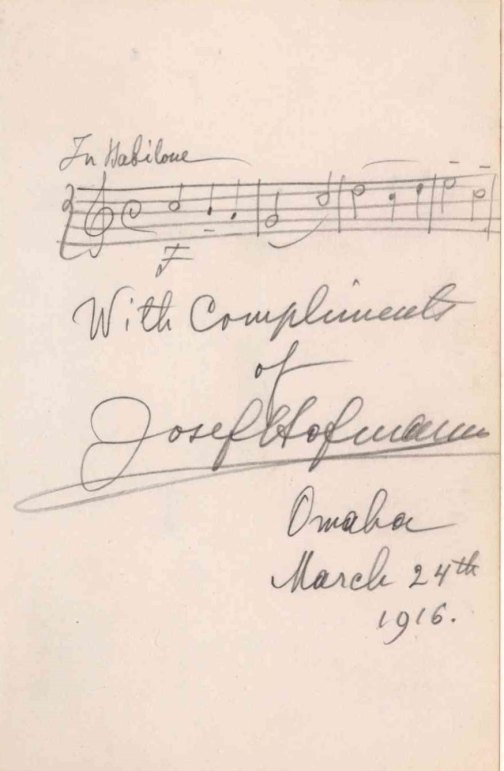 In Habilone
F
With Compliments
of
Josef Hofmann
Omaha
March 24th
1916.